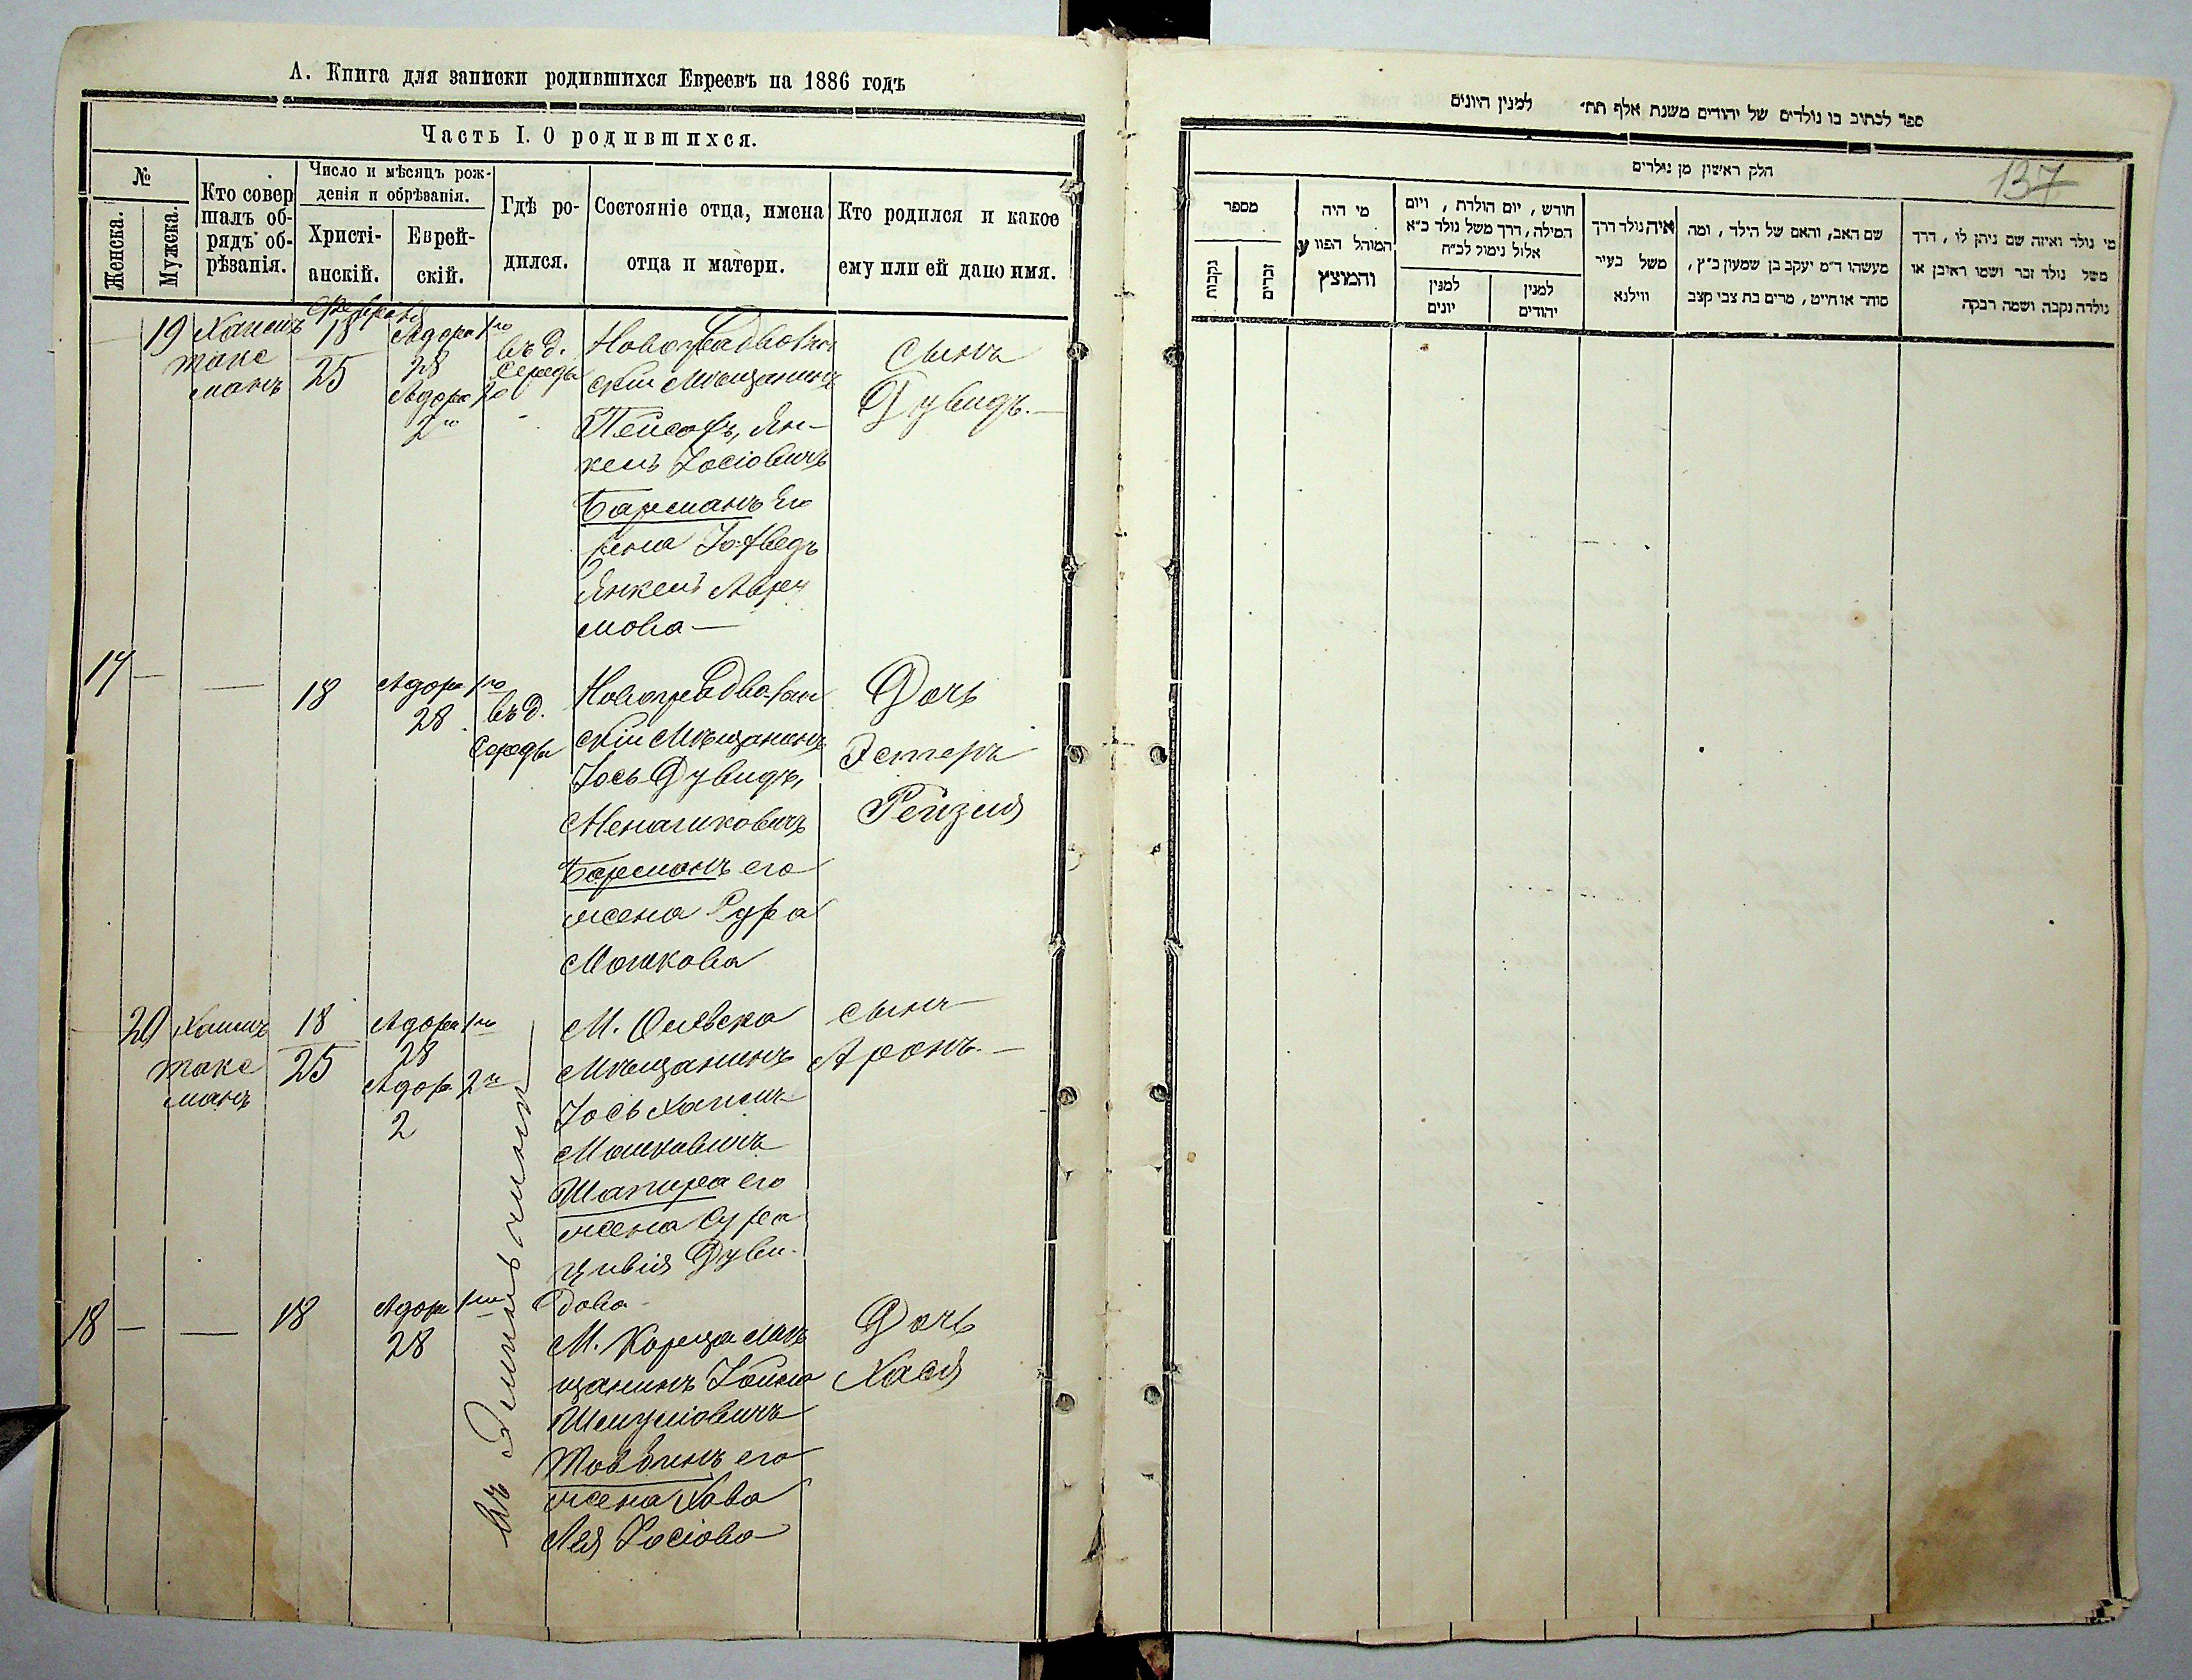 А. Книга для записки родившихся Евреевъ на 1886 годъ
Часть I. О родившихся.
№
Женска.
Мужеска.
Кто совер
шалъ об-
рядъ об-
рѣзанія.
Число и мѣсяцъ рож-
денія и обрѣзанія.
Христі-
анскій.
Еврей-
скій.
Гдѣ ро-
дился.
Состояніе отца, имена
отца и матери.
Кто родился и какое
ему или ей дано имя.
Февраля
19
Хаимъ
Такс
манъ
18
25
Адора 1го
28
Адора 2го
2
въ д.
Середы
скій Мѣщанинъ
Пейсахъ, Ян-
кель Іосіовичъ
Барсманъ Его
жена
Янкель
мова —
Сынъ
Дувидъ. —
17
—
—
18
Адора 1го
28
въ д.
Середы
скій Мѣщанинъ
Іось Дувидъ,
Менашковичъ
Барсманъ его
жена Сура
Мошкова
Дочь
Эстеръ
Рейзия
20
Хаимъ
Такс
манъ
18
25
Адора 1го
28
Адора 2го
2
М. Олевска
Мѣщанинъ
Іось Хаимъ
Мошковичъ
Шапира его
жена Сура
Цивія Дуви-
дова
Сынъ
Аронъ. —
въ Эмильчинѣ
18
—
—
18
Адора 1го
28
М. Кореца Мѣ
щанинъ
Шмуліовичъ
его
жена Хава
Лея Іосіова
Дочь
Хася
ספר לכתוב בו נולדים של יהודים משנת אלף תת״ למנין היונים
137
חלק ראשון מן נולדים
מספר
נקבות
זכרים
מי היה
המוהל הפווע
והמוצץ
חודש, יום הולדת, ויום
המילה, דרך משל נולד כ״א
אלול נימול לכ״ח
למנין
יונים
למנין
יהודים
איה נולד דרך
משל בעיר
ווילנא
שם האב, והאם של הילד, ומה
מעשהו ד״מ יעקב בן שמעון כ״ץ,
סוחר או חייט, מרים בת צבי קצב
מי נולד ואיזה שם ניתן לו, דרך
משל נולד זכר ושמו ראובן או
נולדה נקבה ושמה רבקה